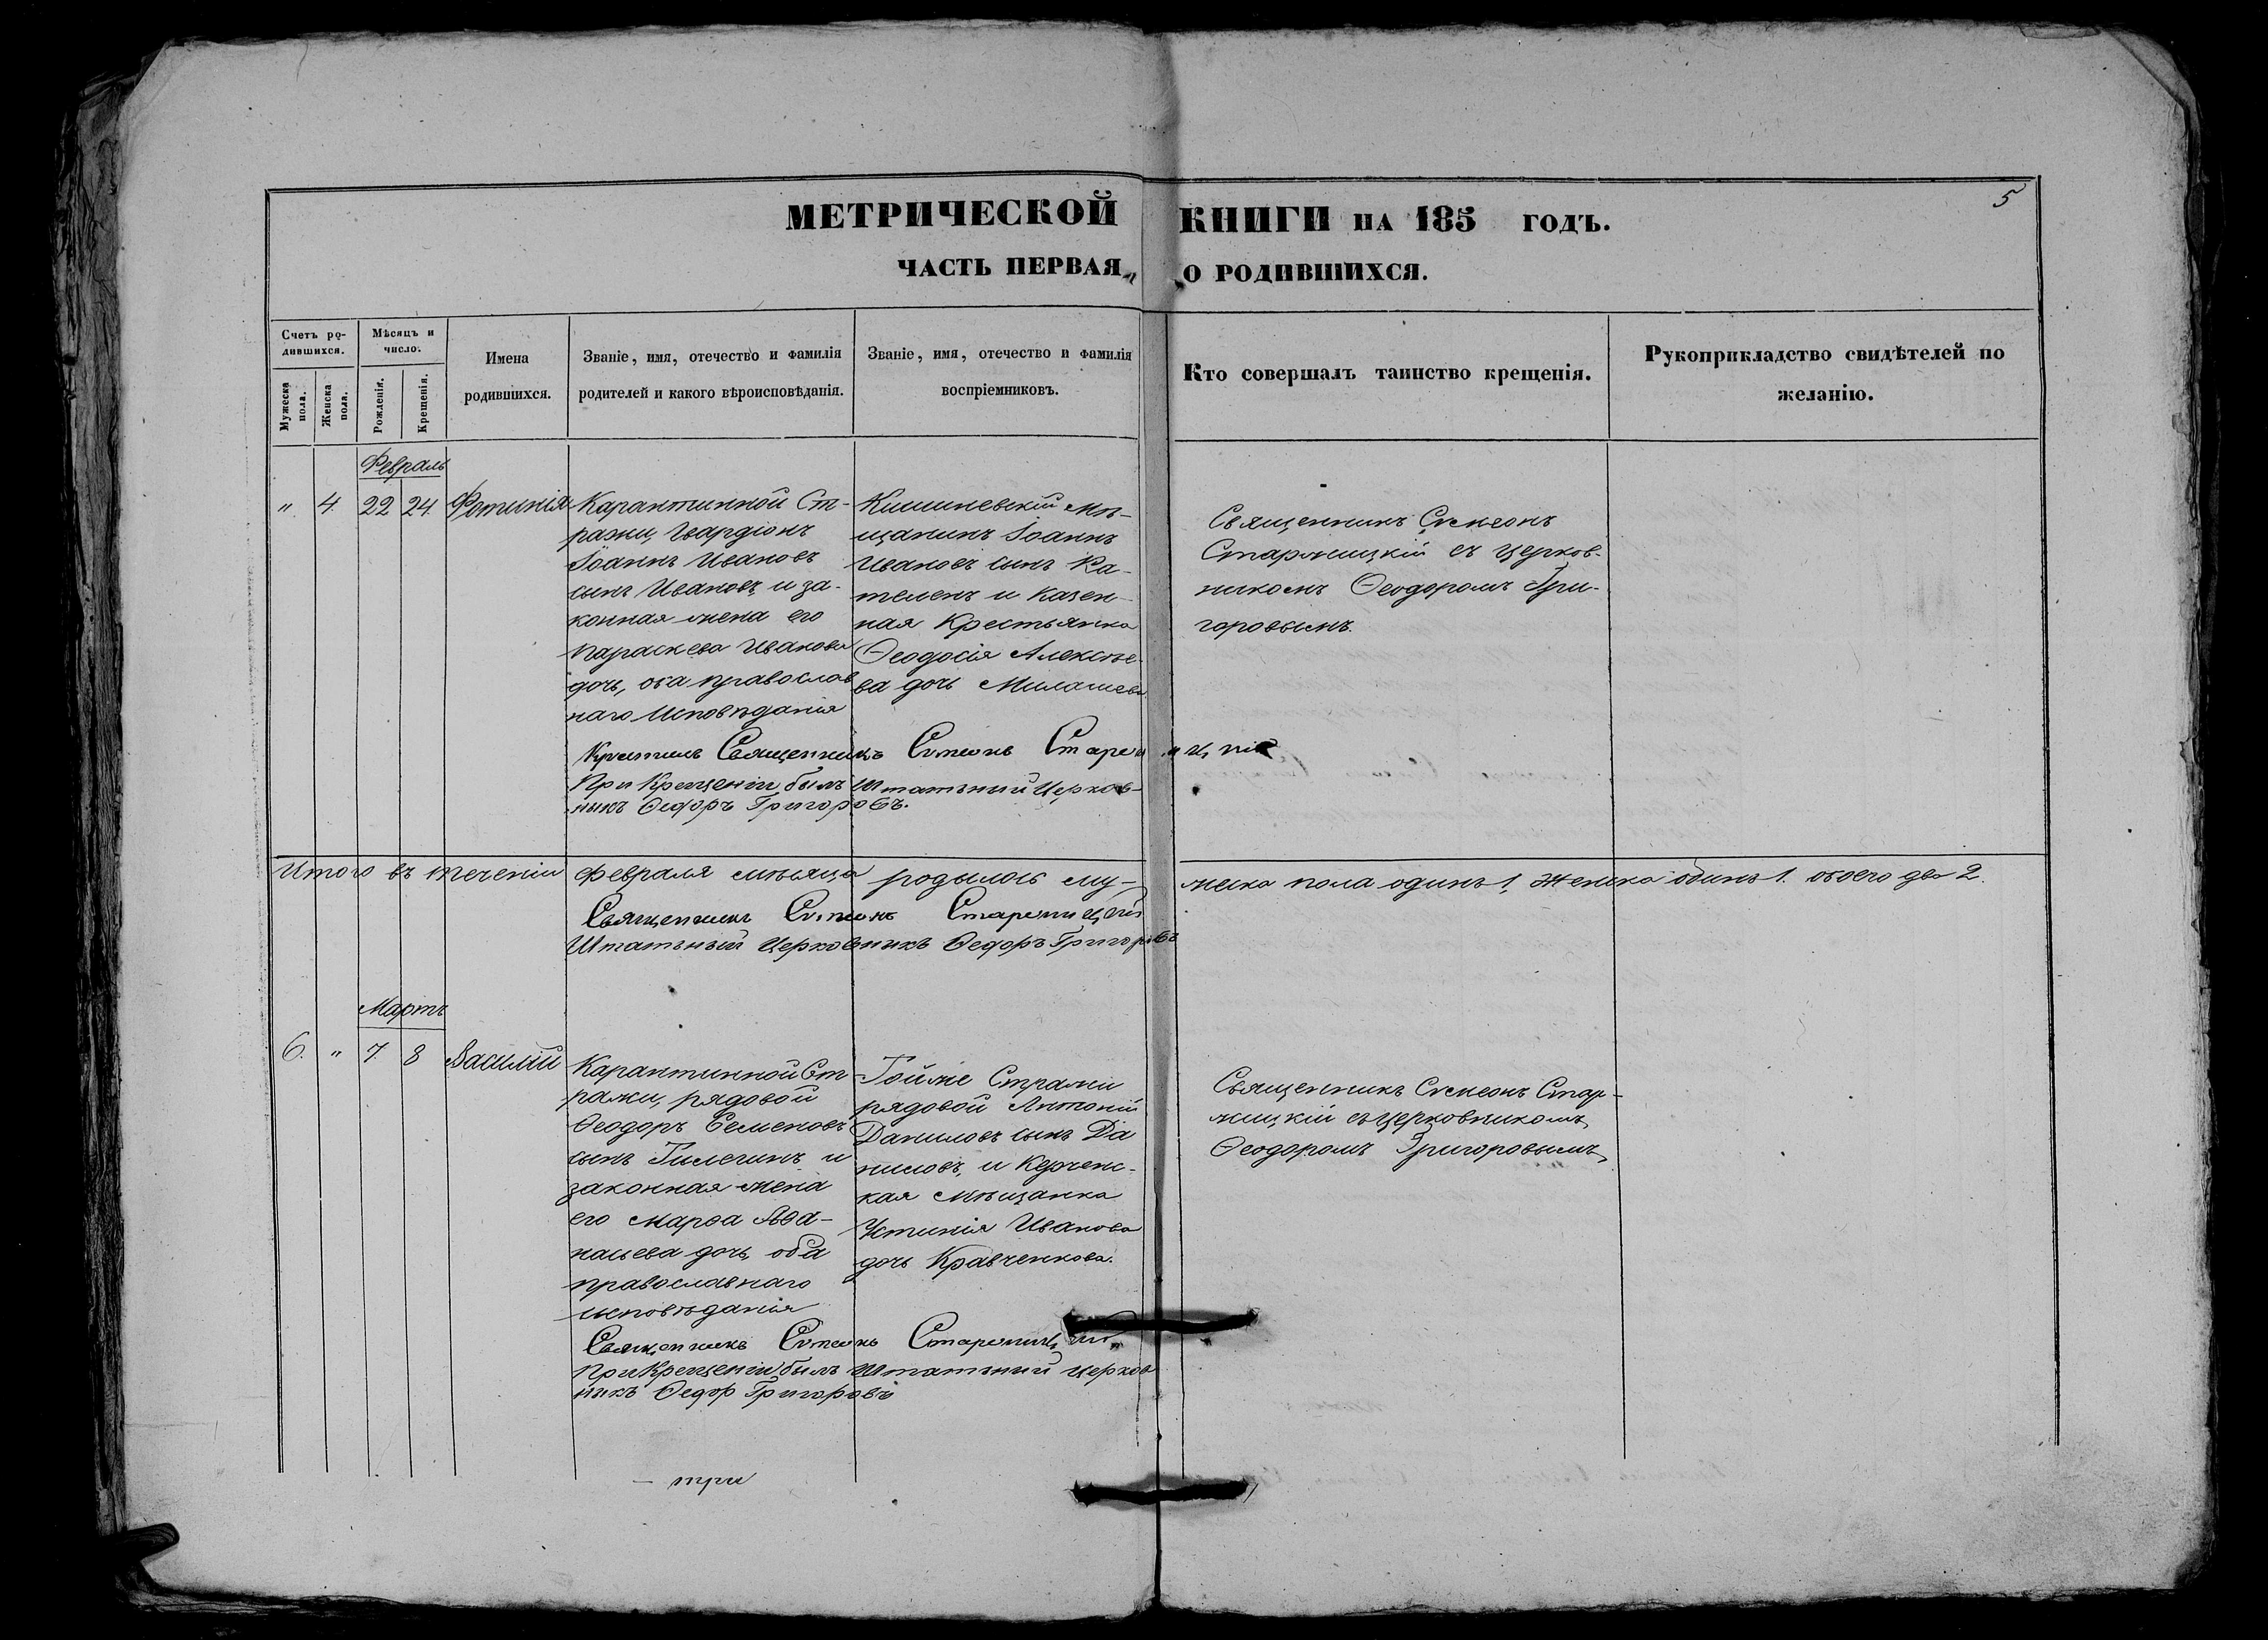 5
МЕТРИЧЕСКОЙ КНИГИ НА 185 ГОДЪ.
ЧАСТЬ ПЕРВАЯ, О РОДИВШИХСЯ.
Счетъ ро-
дившихся.
Мужеска
пола.
Женска
пола.
Мѣсяцъ и
число.
Рожденія.
Крещенія.
Имена
родившихся.
Званіе, имя, отечество и фамилія
родителей и какого вѣроисповѣданія.
Званіе, имя, отечество и фамилія
воспріемниковъ.
Кто совершалъ таинство крещенія.
Рукоприкладство свидѣтелей по
желанію.
Февраль
" 4 22 24 Фотинія
Карантинной Ст-
ражи, гвардіонъ
Іоаннъ Ивановъ
сынъ Ивановъ, и за-
конная жена его
Параскева Иванова
дочь, оба православ
наго исповѣданія
Кишиневскій мѣ-
щанинъ Іоаннъ
Ивановъ сынъ Ка-
теленъ и казен-
ная крестьянка
Ѳеодосія Алексѣе-
ва дочь
Священникъ Сѵмеонъ
Старжицкій съ церков-
никомъ Ѳеодоромъ Гри-
горовымъ.
Крестилъ Священникъ Сѵмеонъ
При Крещеніи былъ Штатный Церков-
ныкъ Ѳедоръ Григоровъ.
Итого въ теченіи февраля мѣсяца родылось му-
жеска пола одинъ 1, женска одинъ 1. обоего два 2.
Священникъ Сѵмеонъ
Штатный Церковникъ Ѳедоръ Григоровъ
Мартъ
6. " 7. 8 Василій
Карантинной Ст
ражи, рядовой
Ѳеодоръ Семеновъ
сынъ и
законная жена
его Марѳа Аѳа-
насьева дочь, оба
православнаго
исповѣданія
Тойже Стражи
рядовой Антоній
Даниловъ сынъ Да
ниловъ, и Керченс-
кая мѣщанка
Устинія Иванова
дочь Кравченкова.
Священникъ Сѵмеонъ Стар-
жицкій съ церковникомъ
Ѳеодоромъ Григоровымъ
Священникъ Сѵмеонъ
При Крещеніи былъ Штатный Церков
никъ Ѳедор Григоровъ
— три